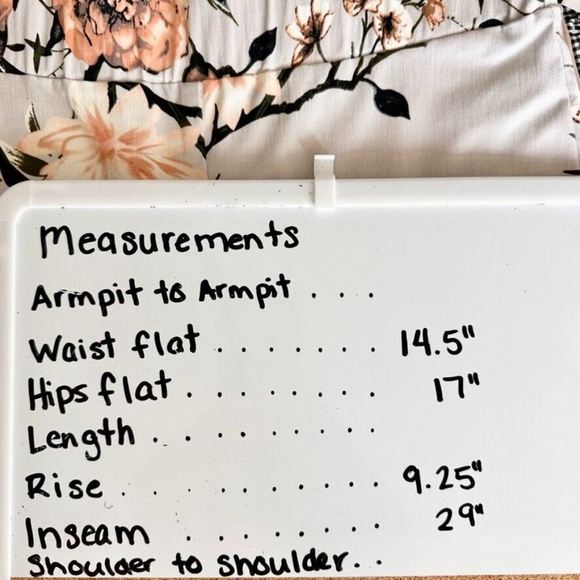 Measurements
Armpit to Armpit . . .
Waist flat . . . . . . . 14.5"
Hips flat . . . . . . . . 17"
Length . . . . . . . . .
Rise . . . . . . . . . . 9.25"
Inseam . . . . . . . . 29"
Shoulder to shoulder. . .